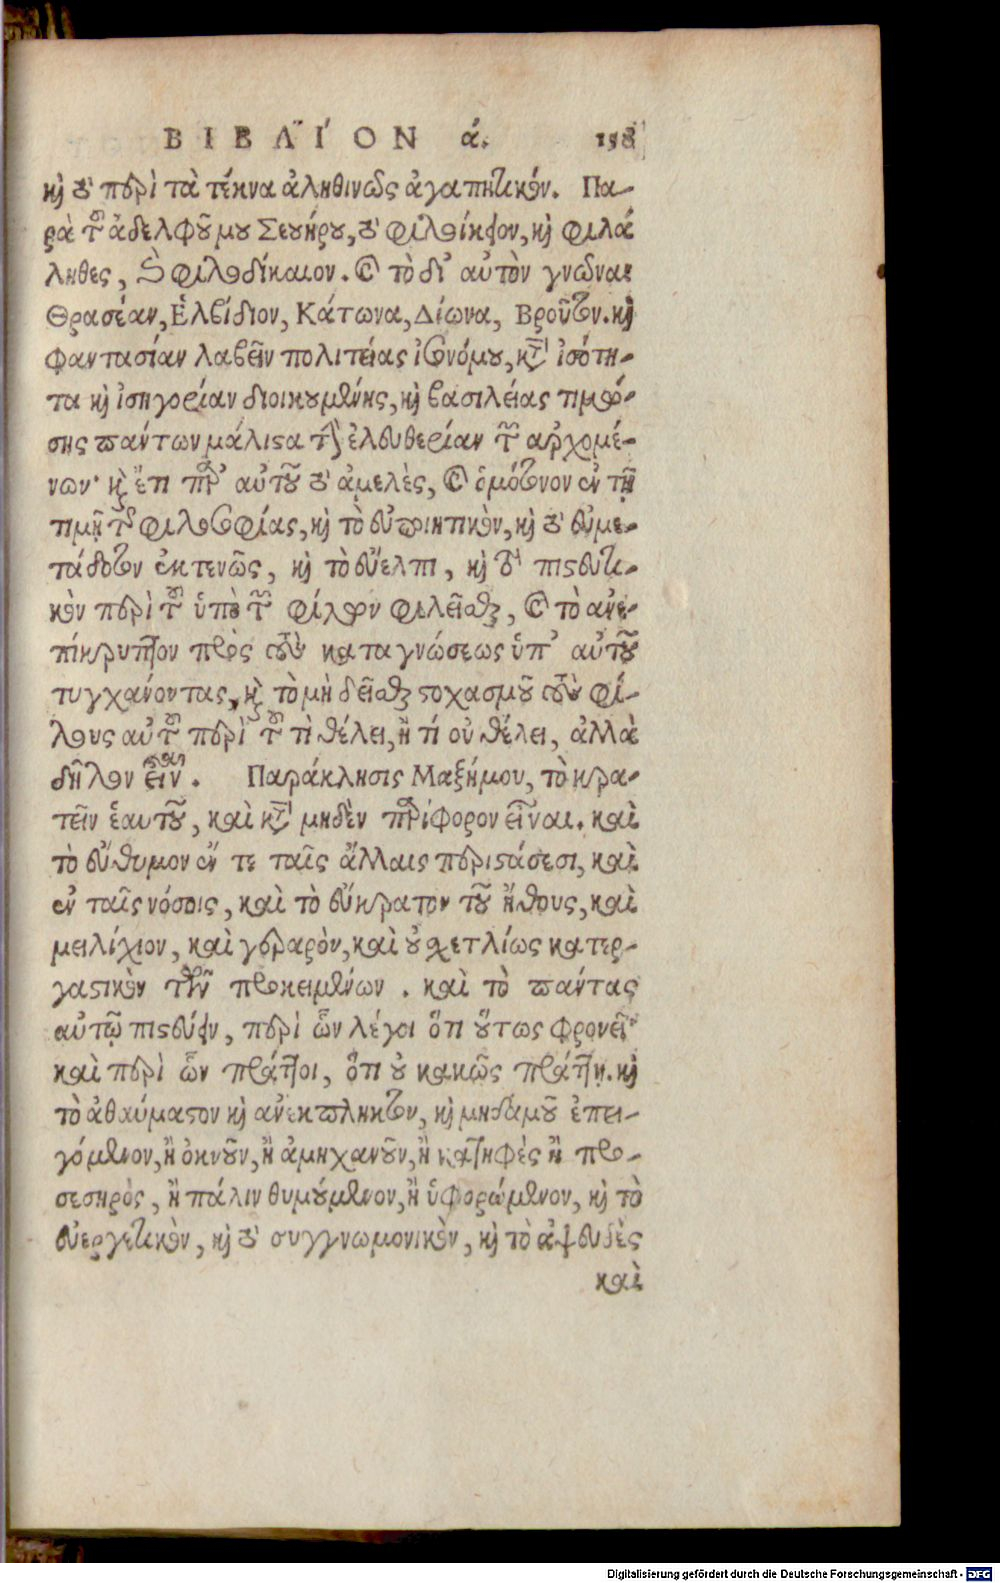 ΒΙΒΛΊΟΝ ά. 158
καὶ τὸ περὶ τὰ τέκνα ἀληθινῶς ἀγαπητικόν. Πα-
ρὰ τοῦ ἀδελφοῦ μου Σευήρου, τὸ φιλοίκειον, καὶ φιλά
ληθες, καὶ φιλοδίκαιον. καὶ τὸ δι' αὐτὸν γνῶναι
Θρασέαν, Ἑλβίδιον, Κάτωνα, Δίωνα, Βροῦτον. καὶ
φαντασίαν λαβεῖν πολιτείας ἰσονόμου, κατ' ἰσότη-
τα καὶ ἰσηγορίαν διοικουμένης, καὶ βασιλείας τιμώ-
σης πάντων μάλιστα τὴν ἐλευθερίαν τῶν ἀρχομέ-
νων· καὶ ἔτι παρ' αὐτοῦ τὸ ἀμελὲς, καὶ ὁμότονον ἐν τῇ
τιμῇ τῆς φιλοσοφίας, καὶ τὸ εὐποιητικὸν, καὶ τὸ εὐμε-
τάδοτον ἐκτενῶς, καὶ τὸ εὔελπι, καὶ τὸ πιστευτι-
κὸν περὶ τοῦ ὑπὸ τῶν φίλων φιλεῖσθαι, καὶ τὸ ἀνε-
πίκρυπτον πρὸς τοὺς καταγνώσεως ὑπ' αὐτοῦ
τυγχάνοντας, καὶ τὸ μὴ δεῖσθαι στοχασμοῦ τοὺς φί-
λους αὐτοῦ περὶ τοῦ τί θέλει, ἢ τί οὐ θέλει, ἀλλὰ
δῆλον εἶναι. Παράκλησις Μαξήμου, τὸ κρα-
τεῖν ἑαυτοῦ, καὶ κατὰ μηδὲν περίφορον εἶναι. καὶ
τὸ εὔθυμον ἔν τε ταῖς ἄλλαις περιστάσεσι, καὶ
ἐν ταῖς νόσοις, καὶ τὸ εὔκρατον τοῦ ἤθους, καὶ
μειλίχιον, καὶ γεραρὸν, καὶ οὐ σχετλίως κατερ-
γαστικὸν τῶν προκειμένων. καὶ τὸ πάντας
αὐτῷ πιστεύειν, περὶ ὧν λέγοι ὅτι οὕτως φρονεῖ·
καὶ περὶ ὧν πράττοι, ὅτι οὐ κακῶς πράττῃ. καὶ
τὸ ἀθαύμαστον καὶ ἀνέκπληκτον, καὶ μηδαμοῦ ἐπει-
γόμενον, ἢ ὀκνοῦν, ἢ ἀμηχανοῦν, ἢ κατηφὲς ἢ προ-
σεσηρὸς, ἢ πάλιν θυμούμενον, ἢ ὑφορώμενον, καὶ τὸ
εὐεργετικὸν, καὶ τὸ συγγνωμονικὸν, καὶ τὸ ἀψευδὲς
καὶ
Digitalisierung gefördert durch die Deutsche Forschungsgemeinschaft - DFG